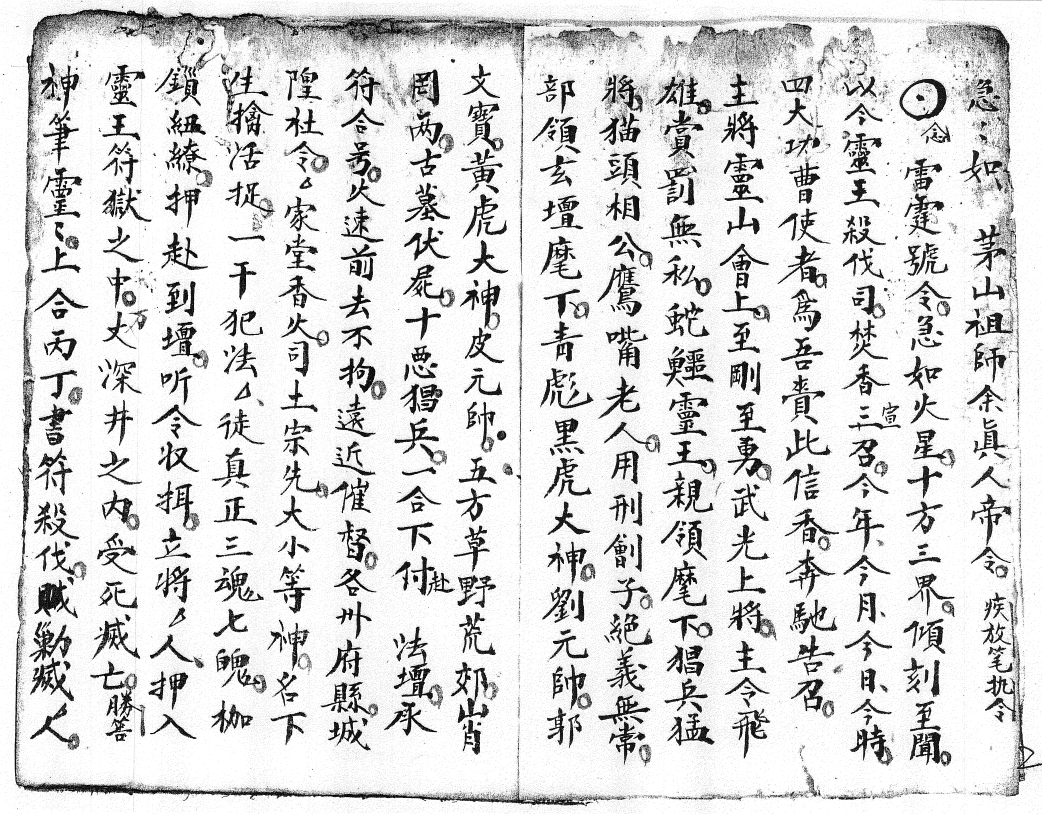 急〻如　茅山祖師余真人帝令。疾放笔执令
念雷霆號令。急如火星十方三界。傾刻至聞。
以今靈王殺伐司。焚香三宣召。今年、今月、今日、今時。
四大功曹使者。為吾賫此信香。奔馳告召。
主將靈山會上。至剛至勇。武光上將。主令飛
雄。賞罰無私。蛇鱷靈王。親領麾下。猖兵猛
將。猫頭相公。鷹嘴老人。用刑劊子。絕義無常。
部領玄壇麾下。青彪黑虎大神。劉元帥。郭
文寶。黃虎大神。皮元帥。五方草野荒郊。山肖
罔両。古墓伏屍。十惡猖兵。一合下付赴　法壇。承
符合号。火速前去不拘。遠近催督。各州府縣城
隍社令。厶家堂香火。司土宗先。大小等神。名下
生擒活捉。一干犯法厶、徒真正三魂七魄。枷
鎖紐繚。押赴到壇。听令收押。立將厶人。押入
靈王符獄之中。万丈深井之內。受死滅亡。勝筶
神筆靈〻。上合丙丁。書符殺伐。賊巢勦滅厶人。